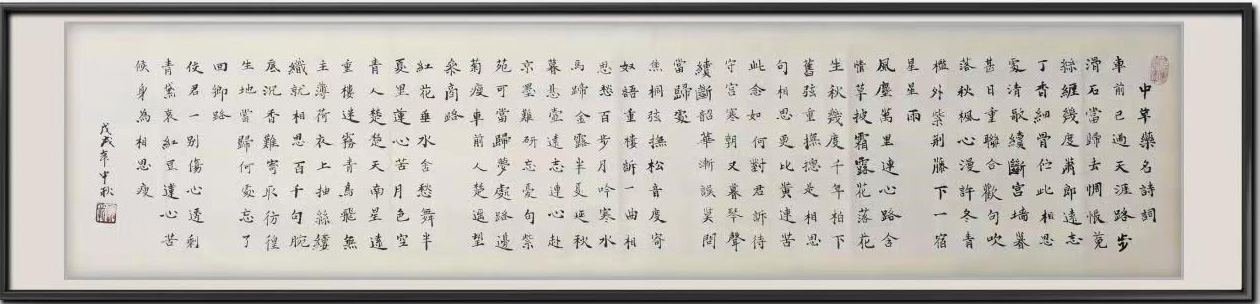 中草藥名詩詞
車前已過天涯路步
滑石當歸去惆悵菟
絲纏幾度蕭郎遠志
丁香細骨但此相思
處清歌續斷宮墻暮
甚日重聯合歡句吹
落秋楓心漫許冬青
檻外紫荊藤下一宿
星星雨
風塵萬里連心路含
情草披霜露花落花
生秋幾度千年柏下
舊弦重撫總是相思
句相思更比黃連苦
此念如何對君訴待
守宮寒朝又暮琴聲
續斷韶華漸誤莫問
當歸處
焦桐弦撫松音度寄
奴語重樓訴一曲相
思愁百步月吟寒水
馬蹄金露半夏延秋
暮懸壺遠志連心赴
京墨難研忘憂句紫
苑可當歸夢處路邊
菊瘦車前人楚遥望
采商路
紅花垂水含愁舞半
夏里蓮心苦月色空
青人楚楚天南星遠
重樓迷霧青鳥飛無
主薄荷衣上抽絲縷
織就相思百千句腕
底沉香難寄取彷徨
生地當歸何處忘了
回鄉路
佼君一別傷心透剩
青黛哀紅豆蓮心苦
候身為相思瘦
戊戌年中秋